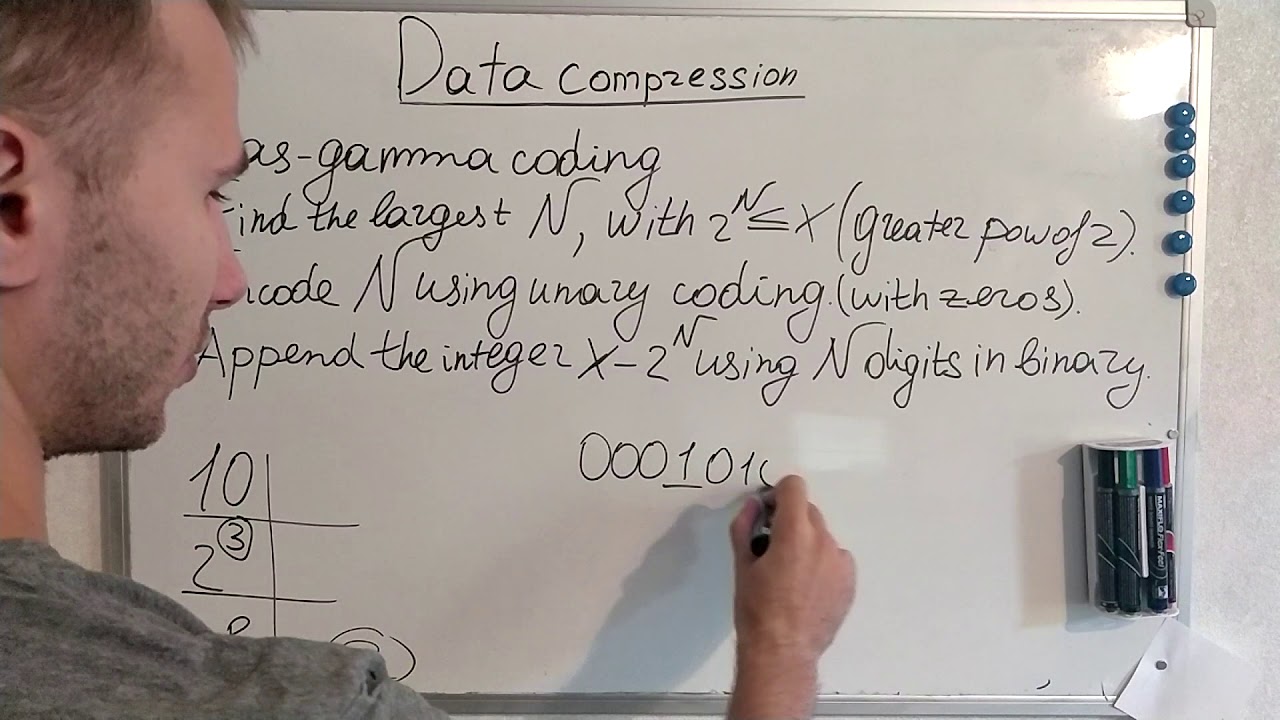 Data compression
as-gamma coding
ind the largest N, with 2^N ≤ X (greater pow of 2).
code N using unary coding. (with zeros).
Append the integer X-2^N using N digits in binary.
10
0001010
2^3
8